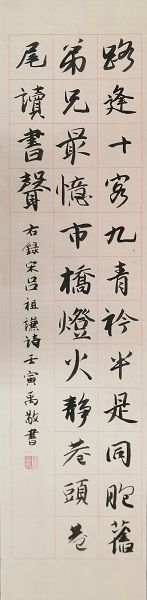 路逢十客九青衿半是同胞舊
弟兄最憶市橋燈火靜巷頭巷
尾讀書聲
右錄宋呂祖謙詩壬寅禹敬書